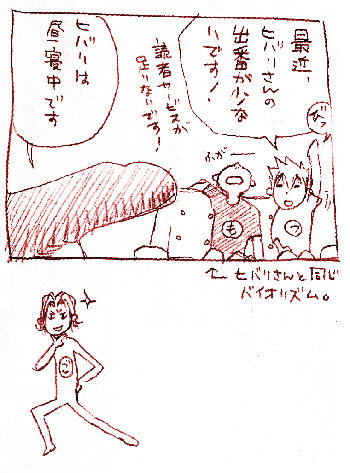 びっ
最近、
ヒバリさんの
出番が少な
いです！
読者サービスが
足りないです！
ヒバリは
昼寝中です
ふがー
も
つ
←ヒバリさんと同じ
バイオリズム。
ご